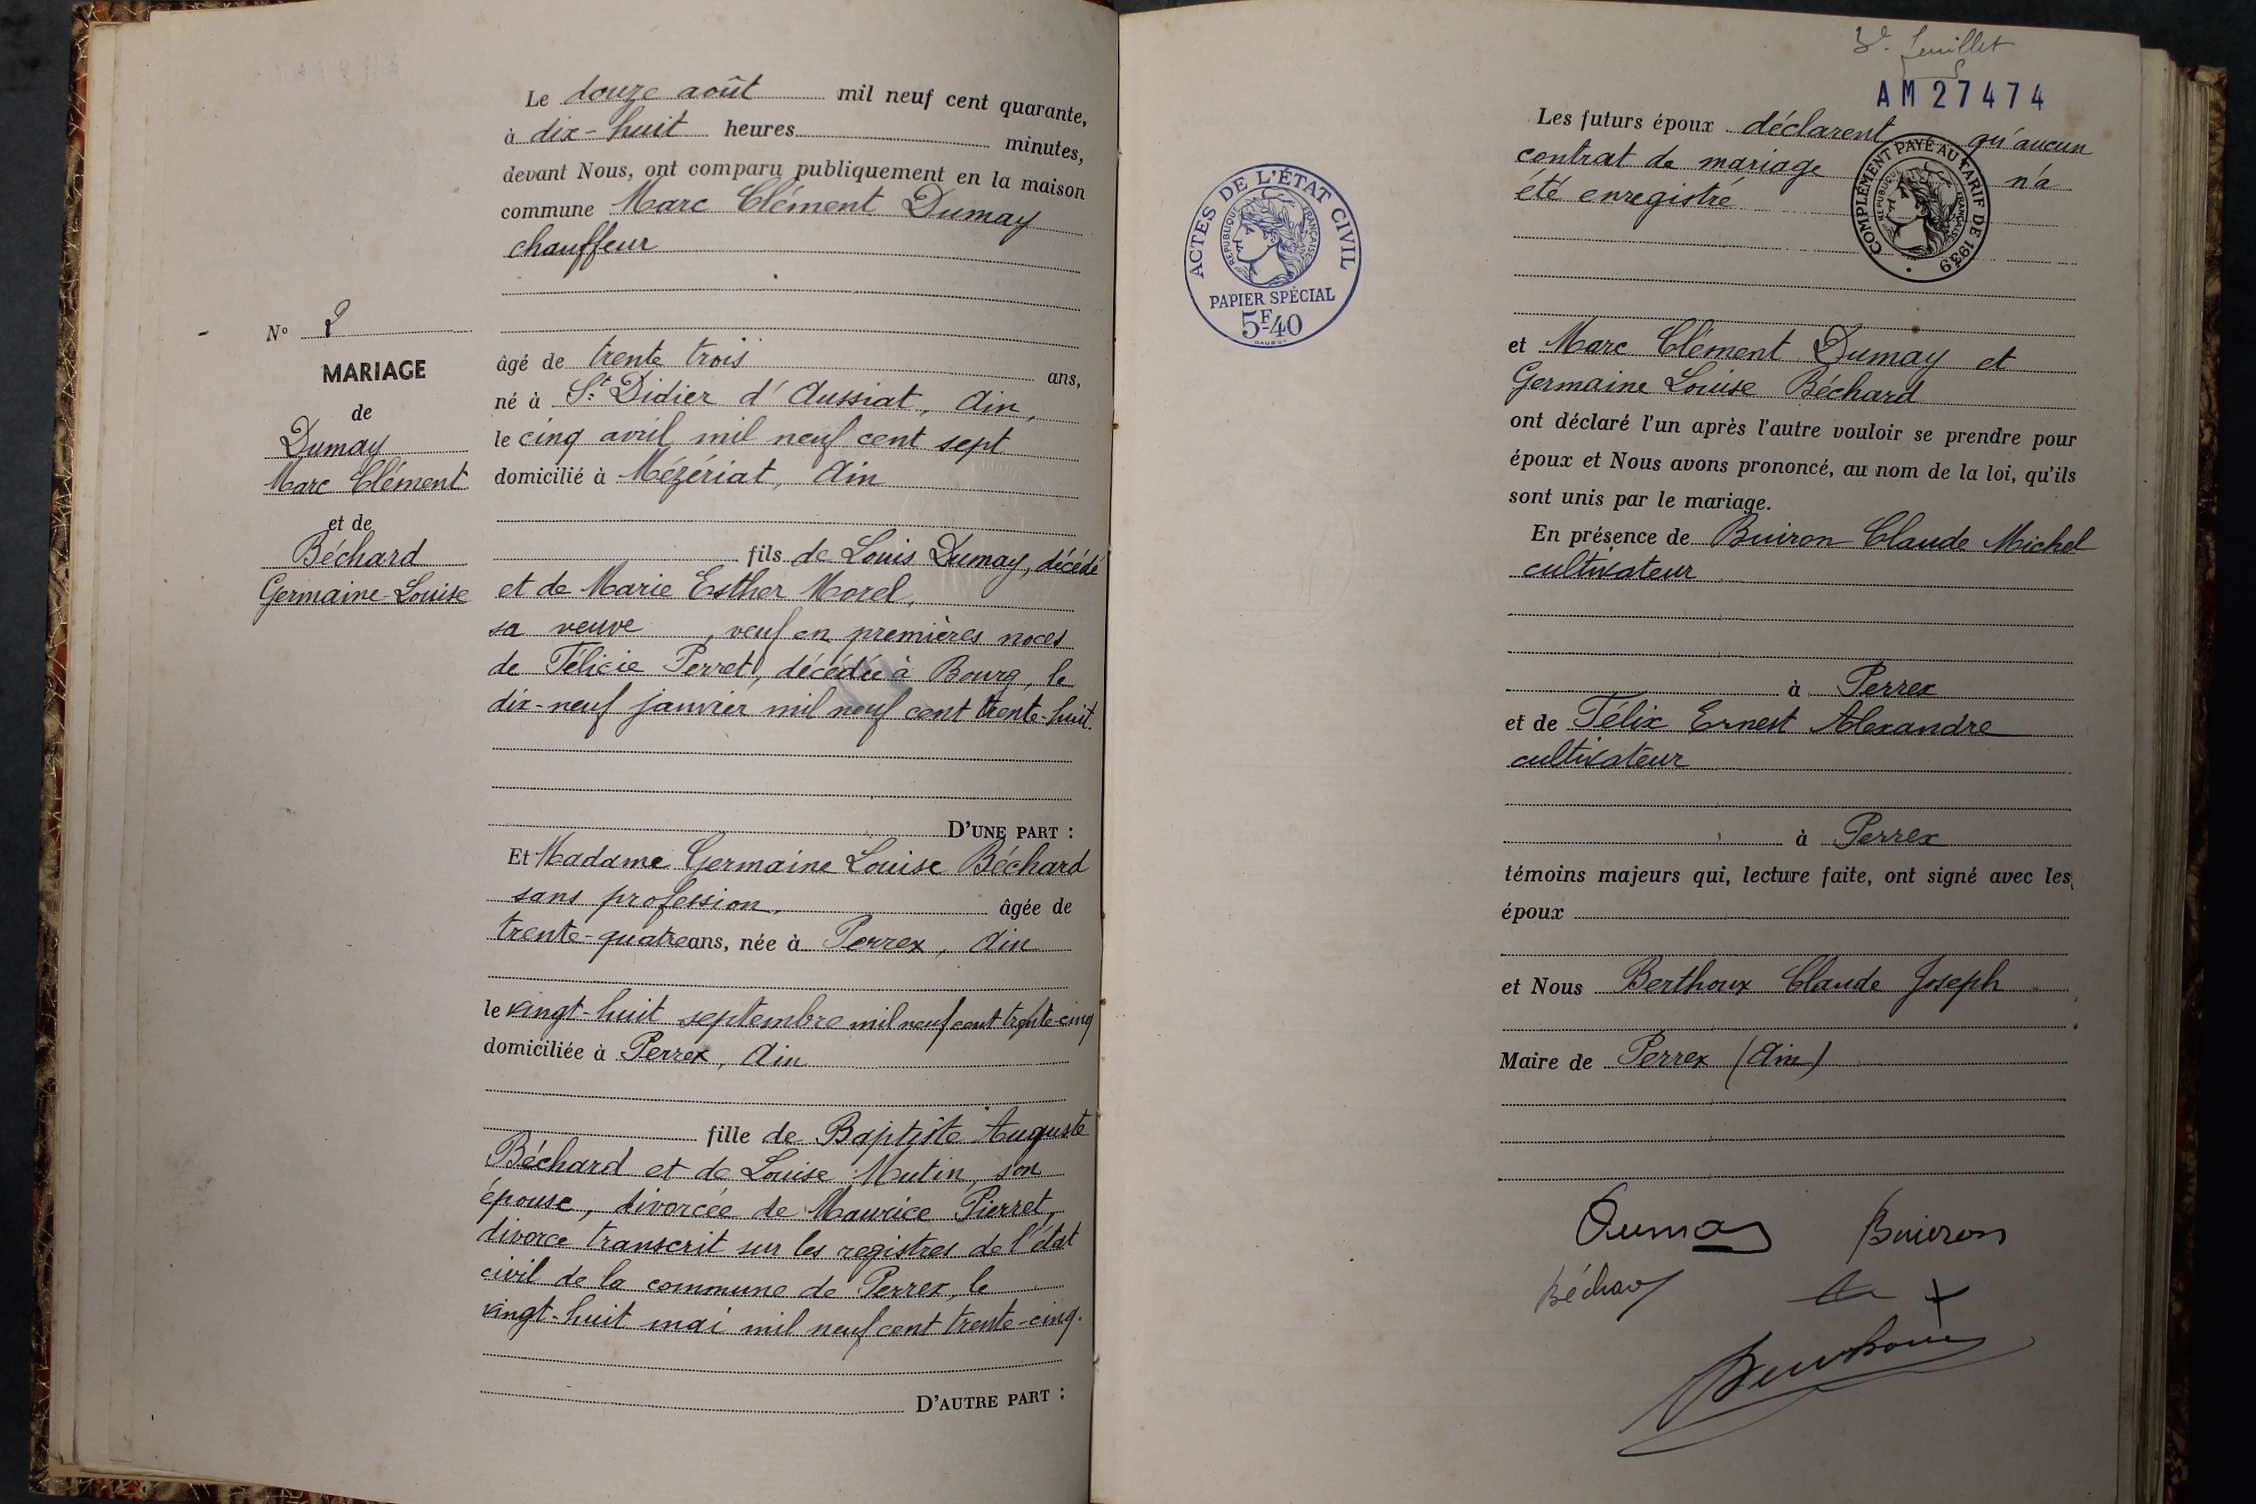 Le douze août mil neuf cent quarante,
à dix-huit heures minutes,
devant Nous, ont comparu publiquement en la maison
commune Marc Clément Dumay
chauffeur
N° 2
MARIAGE
de
Dumay
Marc Clément
et de
Béchard
Germaine-Louise
âgé de trente trois ans,
né à St Didier d'Aussiat, Ain,
le cinq avril mil neuf cent sept
domicilié à Mézériat, Ain
fils de Louis Dumay, décédé
et de Marie Esther Morel,
sa veuve, veuf en premières noces
de Félicie Perret, décédée à Bourg, le
dix-neuf janvier mil neuf cent trente-huit.
D'UNE PART :
Et Madame Germaine Louise Béchard
sans profession, âgée de
trente-quatre ans, née à Perrex, Ain
le vingt-huit septembre mil neuf cent trente-cinq
domiciliée à Perrex, Ain
fille de Baptiste Auguste
Béchard et de Louise Mutin, son
épouse, divorcée de Maurice Pierret,
divorce transcrit sur les registres de l'état
civil de la commune de Perrex, le
vingt-huit mai mil neuf cent trente-cinq.
D'AUTRE PART :
ACTES DE L'ÉTAT CIVIL
RÉPUBLIQUE FRANÇAISE
PAPIER SPÉCIAL
5F40
3e feuillet
AM 27474
COMPLÉMENT PAYÉ AU TARIF DE 1939
RÉPUBLIQUE FRANÇAISE
Les futurs époux déclarent qu'aucun
contrat de mariage n'a
été enregistré
et Marc Clément Dumay et
Germaine Louise Béchard
ont déclaré l'un après l'autre vouloir se prendre pour
époux et Nous avons prononcé, au nom de la loi, qu'ils
sont unis par le mariage.
En présence de Buiron Claude Michel
cultivateur
à Perrex
et de Félix Ernest Alexandre
cultivateur
à Perrex
témoins majeurs qui, lecture faite, ont signé avec les
époux
et Nous Berthoux Claude Joseph
Maire de Perrex (Ain)
Dumay Buiron
Béchard
Berthoux